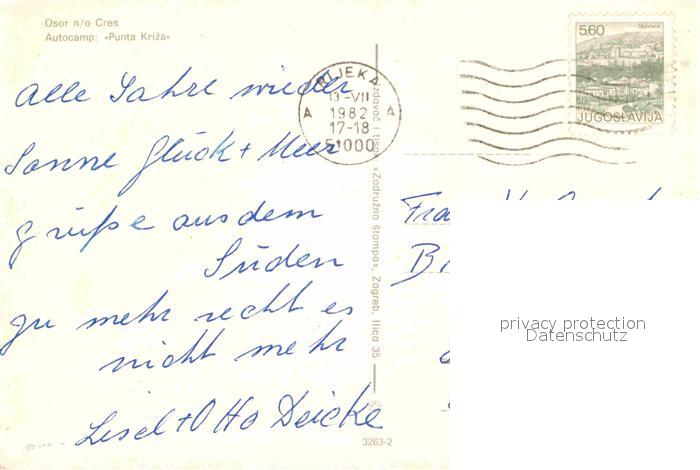 Osor n/o Cres
Autocamp: »Punta Križa«
Alle Jahre wieder
Sonne Glück + Meer
grüße aus dem
Süden
zu mehr recht es
nicht mehr
Lisel + Otto Deicke
RIJEKA
13-VII
1982
17-18
51000
A A
TRAVNIK
5,60
JUGOSLAVIJA
Izdavač i tisak »Zadružna štampa«, Zagreb, Ilica 35
3263-2
Frau
privacy protection
Datenschutz